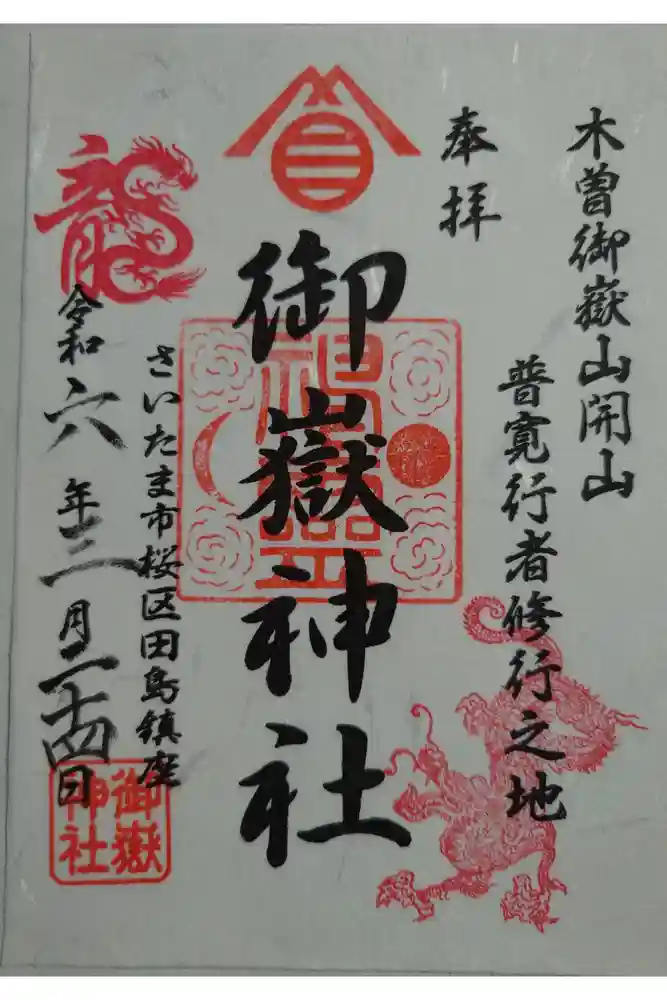 木曽御嶽山開山
普寛行者修行之地
奉拝
御嶽神社
さいたま市桜区田島鎮座
龍
令和六年三月二十四日
御嶽
神社